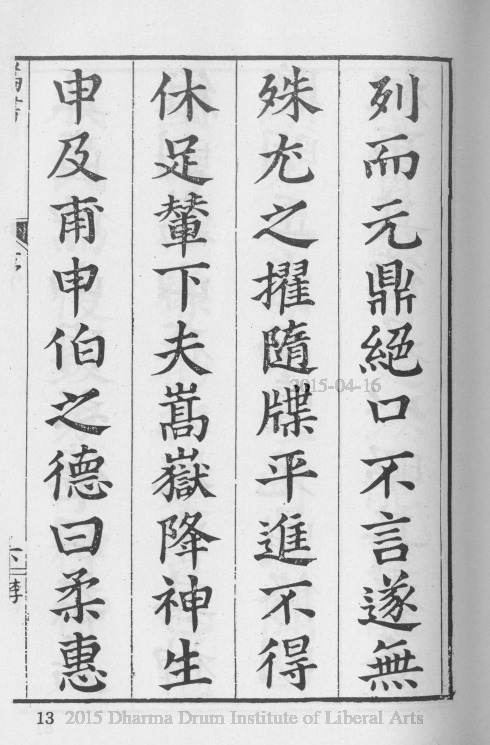 列而元鼎絕口不言遂無
殊尤之擢隨牒平進不得
休足輦下夫嵩嶽降神生
申及甫申伯之德曰柔惠
2015-04-16
13 2015 Dharma Drum Institute of Liberal Arts